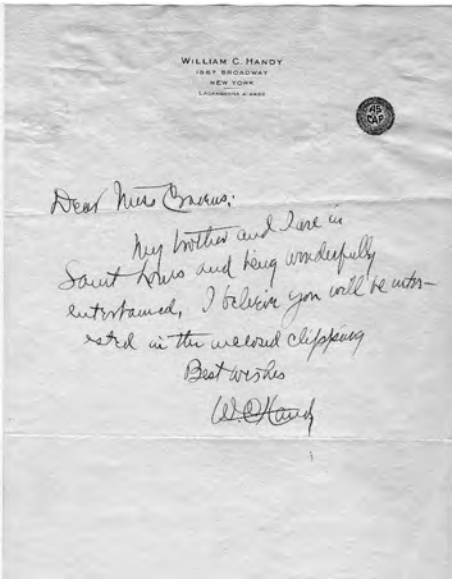 WILLIAM C. HANDY
1587 BROADWAY
NEW YORK
AS
CAP
Dear Miss
My brother and I are in
Saint Louis and being wonderfully
entertained, I believe you will be inter-
ested in the enclosed clipping
Best wishes
W.C. Handy